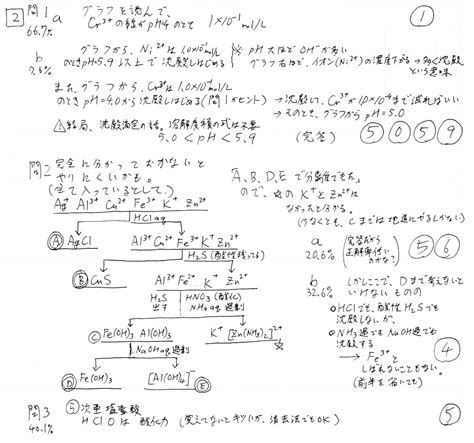 2 問1a グラフを読んで、
66.7% Cr³⁺の線がpH4のとき 1×10⁻¹mol/L ①
b グラフから、Ni²⁺は1.0×10⁻¹mol/L
のときpH5.9以上で沈殿しはじめる
※ pH大ほどOH⁻が多い
グラフ右ほど、イオン(Ni²⁺)の濃度下がる→多く沈殿
という意味
また、グラフから、Cr³⁺は1.0×10⁻¹mol/L
のときpH=4.0から沈殿しはじめる(問1がヒント)
→沈殿して、Cr³⁺が1.0×10⁻⁴まで減ればいい
→そのとき、グラフからpH=5.0
⚠結局、沈殿滴定の話。溶解度積の式は不要
5.0<pH<5.9 (完答) ⑤⓪⑤⑨
問2 完全に分かっておかないと
やりにくいかも。
(全て入っているとして、)
Ag⁺ Al³⁺ Cu²⁺ Fe³⁺ K⁺ Zn²⁺
HClaq
Ⓐ AgCl Al³⁺ Cu²⁺ Fe³⁺ K⁺ Zn²⁺
H₂S (酸性残ってる)
Ⓑ CuS Al³⁺ Fe²⁺ K⁺ Zn²⁺
H₂S 出す HNO₃(酸化) NH₃aq 過剰
Ⓒ Fe(OH)₃ Al(OH)₃ K⁺ [Zn(NH₃)₂]²⁺ ☆
NaOHaq 過剰
Ⓓ Fe(OH)₃ [Al(OH)₄]⁻ Ⓔ
A、B、D、Eで分離できた。
ので、☆のK⁺とZn²⁺は
なかったと分かる。
(少なくとも、Cまでは地道にやるしかない)
a 20.6% (完答だから正解率低いのかな?) ⑤⑥
b 32.6% しかしここで、Dまで考えないと
いけないものの
○HClでも、酸性H₂Sでも
沈殿しないが、
○NH₃過でもNaOH過でも
沈殿する
→ Fe³⁺と
しぼれないこともない。
(前半を省いても) ④
問3 ⓘ次亜塩素酸
40.1% HClOは酸化力 (覚えてないとキツいが、消去法でもOK) ⑤